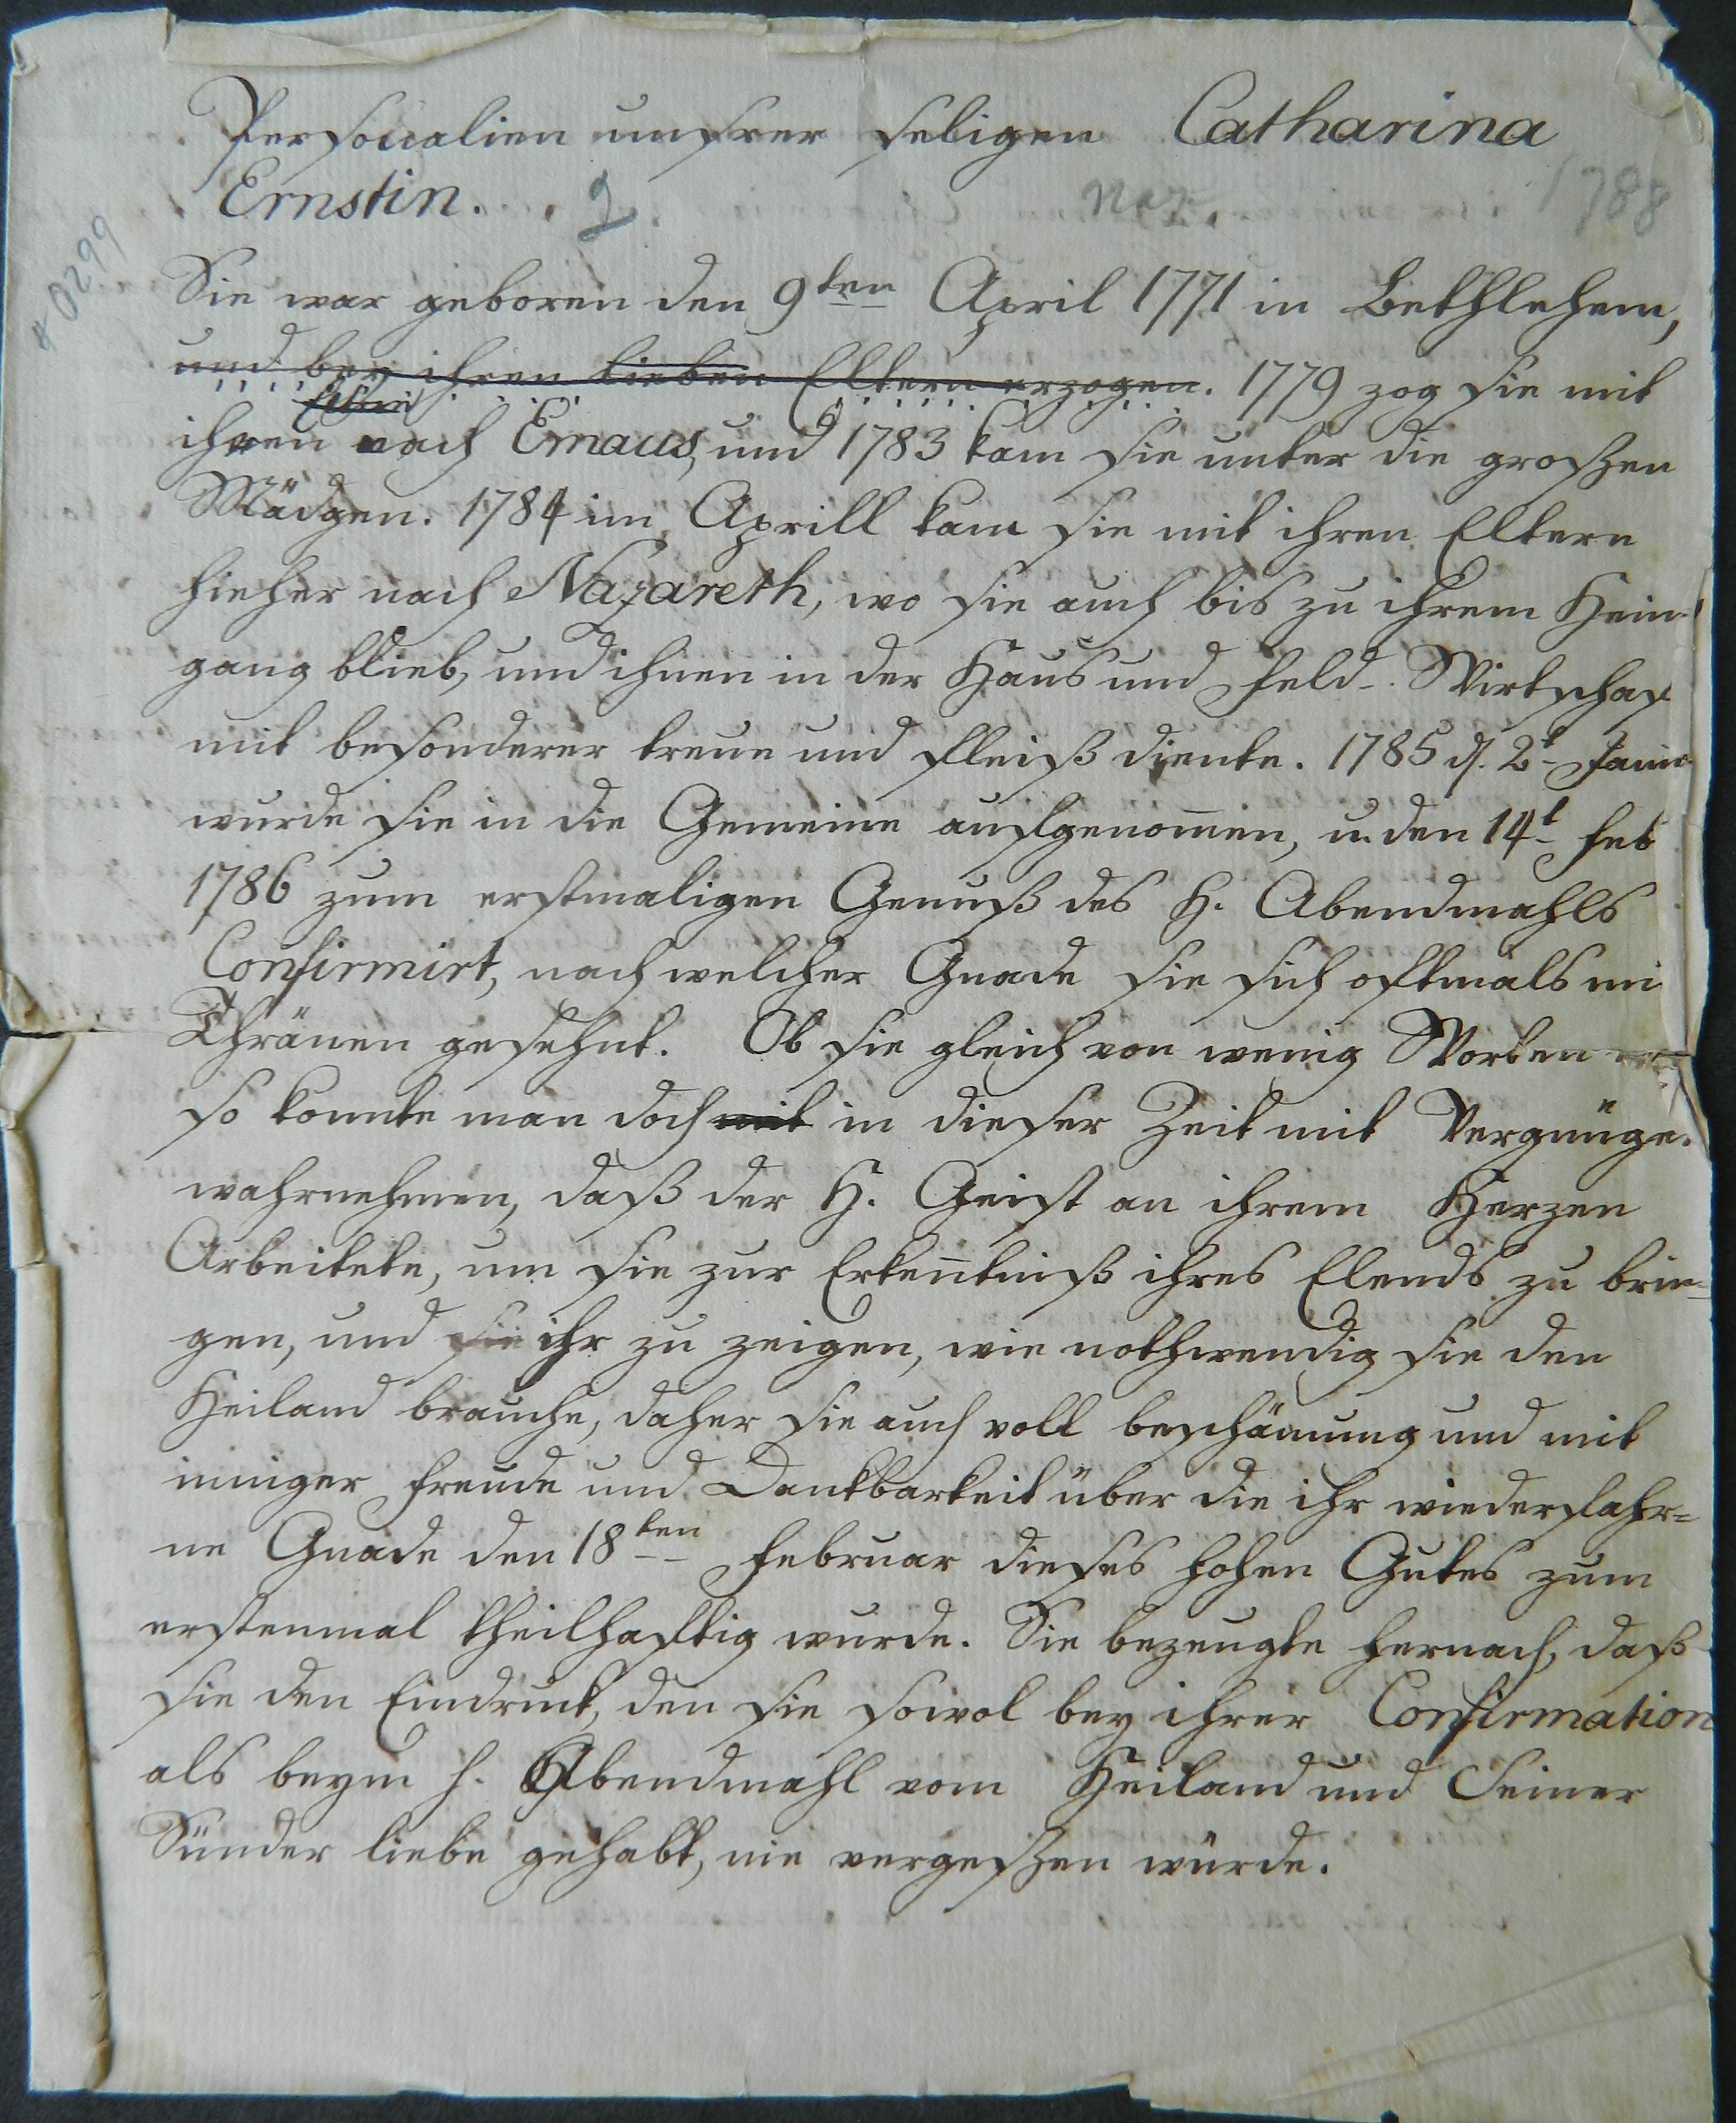 Personalien unsrer seligen Catharina
Ernstin. 2. Naz. 1788
# 0299
Sie war geboren den 9ten April 1771 in Bethlehem,
und bey ihren lieben Eltern erzogen. 1779 zog sie mit
Eltern
ihren nach Emaus, und 1783 kam sie unter die groszen
Mädgen. 1784 im Aprill kam sie mit ihren Eltern
hieher nach Nazareth, wo sie auch bis zu ihrem Heim-
gang blieb, und ihnen in der Haus und Feld-Wirtschaf
mit besonderer treue und fleiß diente. 1785 d. 2t
wurde sie in die Gemeine aufgenom̄en, u. den 14t Feb
1786 zum erstmaligen Genuß des H. Abendmahls
Confirmirt, nach welcher Gnade sie sich oftmals mi
Thränen gesehnt. Ob sie gleich von wenig Worten
so konnte man doch mit in dieser Zeit mit Vergnüge
wahrnehmen, daß der H. Geist an ihrem Herzen
Arbeitete, um sie zur Erken̄tniß ihres Elends zu brin-
gen, und sie ihr zu zeigen, wie nothwendig sie den
Heiland brauche, daher sie auch voll beschämung und mit
inniger Freude und Dankbarkeit über die ihr wiederfahr=
ne Gnade den 18ten Februar dieses hohen Gutes zum
erstenmal theilhaftig wurde. Sie bezeugte hernach, daß
sie den Eindruck, den sie sowol bey ihrer Confirmation
als beym h. Abendmahl vom Heiland und Seiner
Sünder liebe gehabt, nie vergeszen würde.